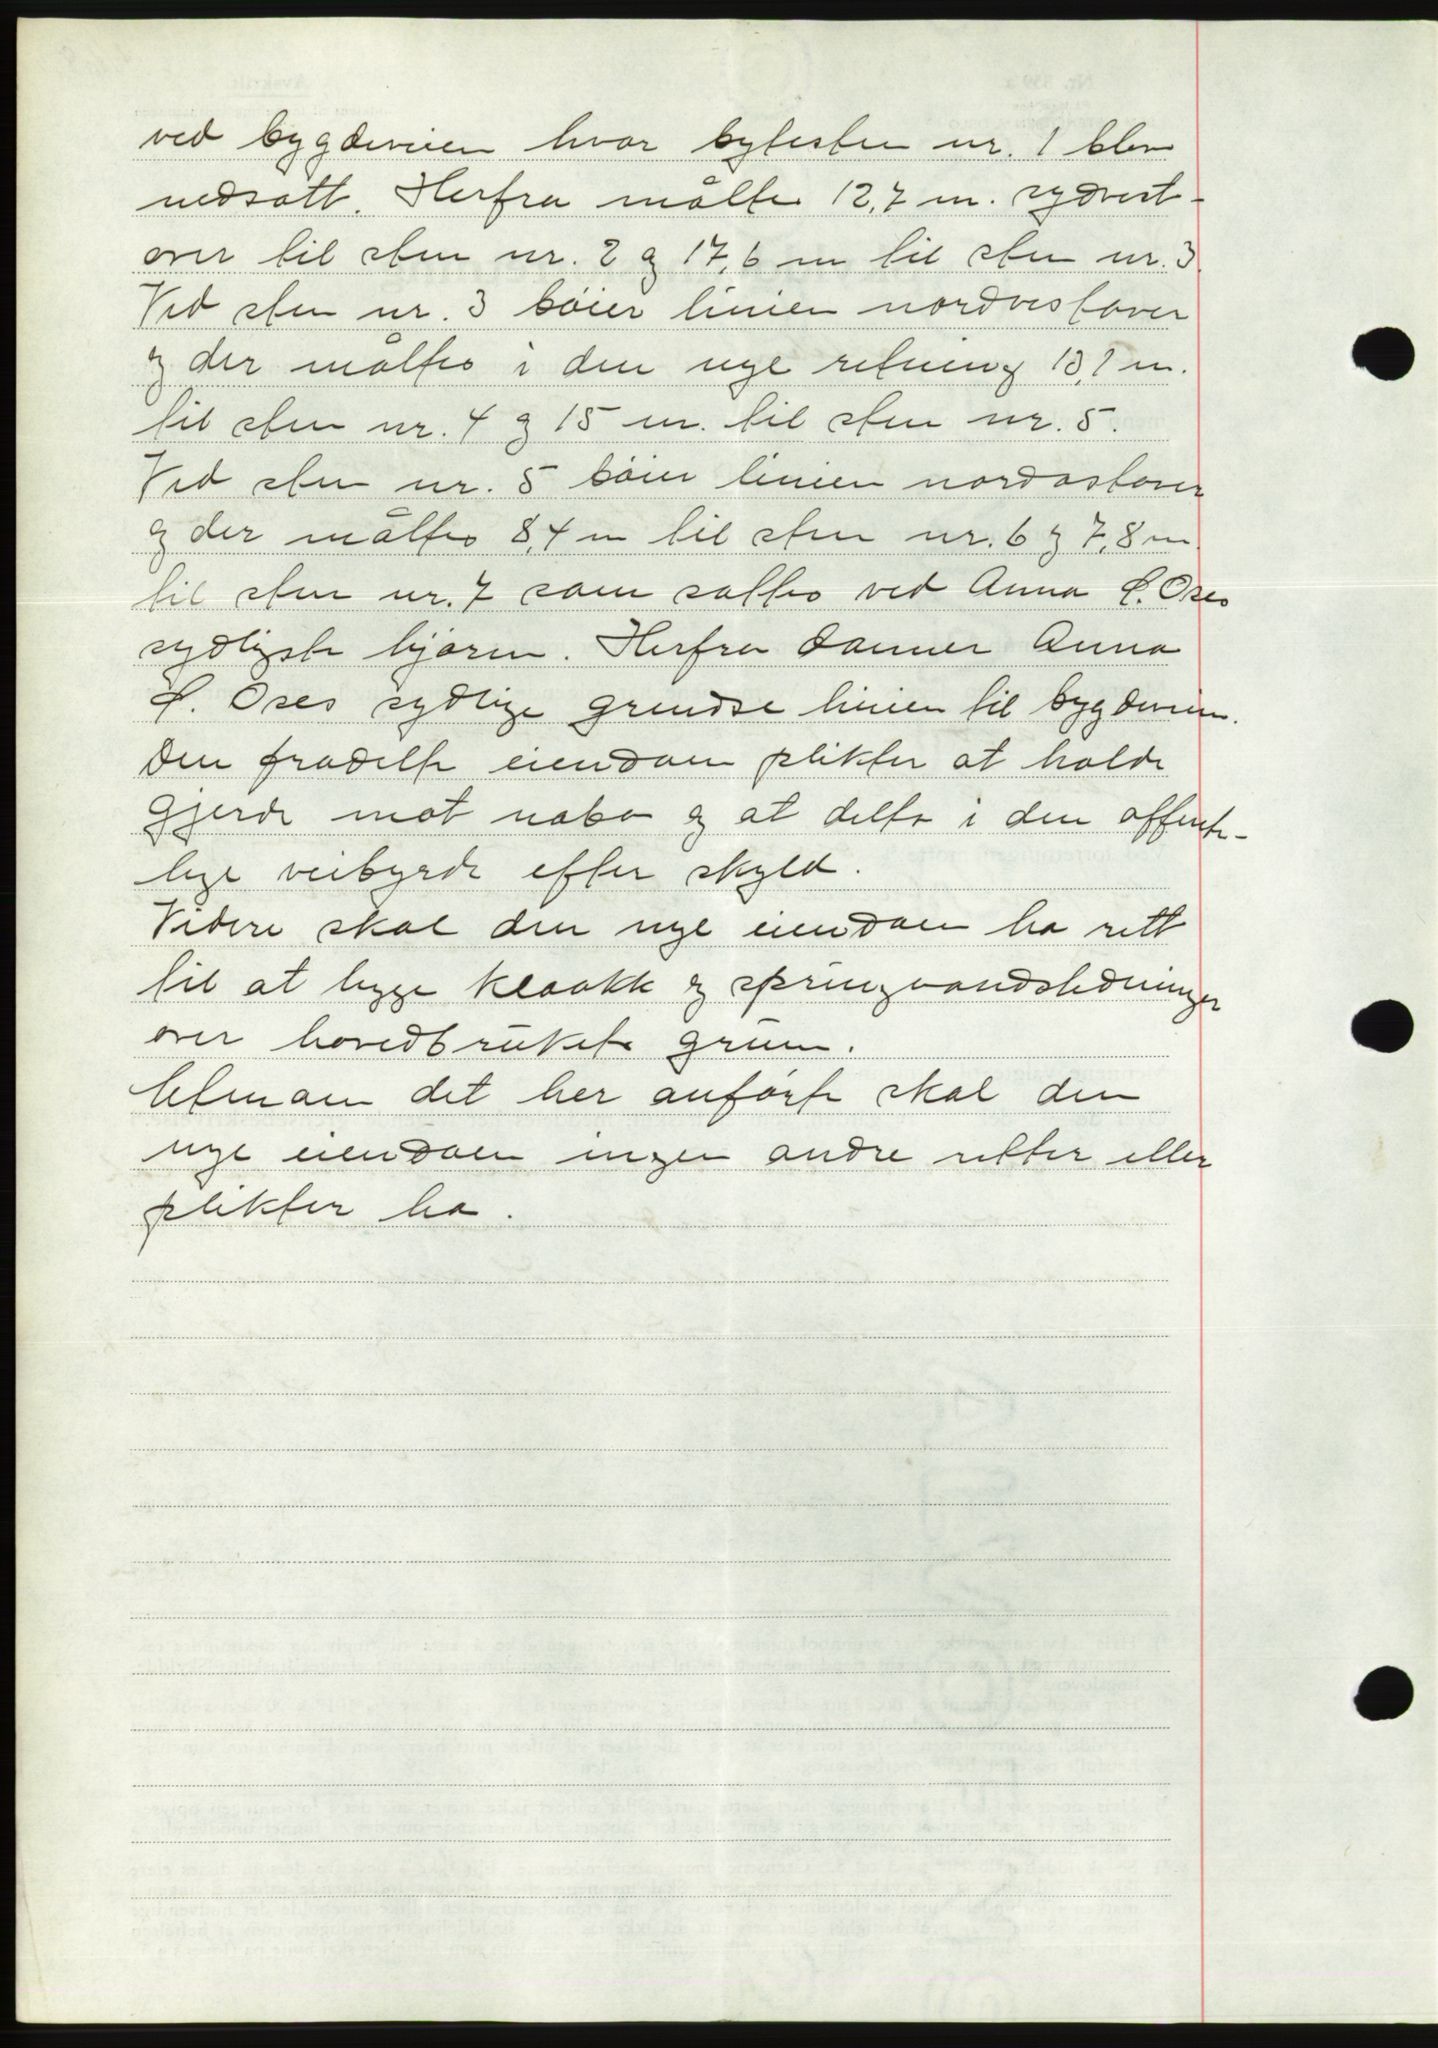 ved bygdeveien hvor bytesten nr. 1 blev
nedsatt. Herfra måltes 12,7 m. sydvest-
over til sten nr. 2 og 17,6 m til sten nr. 3.
Ved sten nr. 3 bøier linien nordvestover
og der måltes i den nye retning 13,1 m.
til sten nr. 4 og 15 m. til sten nr. 5.
Ved sten nr. 5 bøier linien nordostover
og der måltes 8,4 m til sten nr. 6 og 7,8 m.
til sten nr. 7 som sattes ved Anna L. Oses
sydligste hjørne. Herfra danner Anna
L. Oses sydlige grendse linien til bygdeveien.
Den fradelte eiendom plikter at holde
gjerde mot nabo og at delta i den offent-
lige veibyrde efter skyld.
Videre skal den nye eiendom ha rett
til at legge kloakk og springvandsledninger
over hovedbrukets grunn.
Utenom det her anførte skal den
nye eiendom ingen andre retter eller
plikter ha.